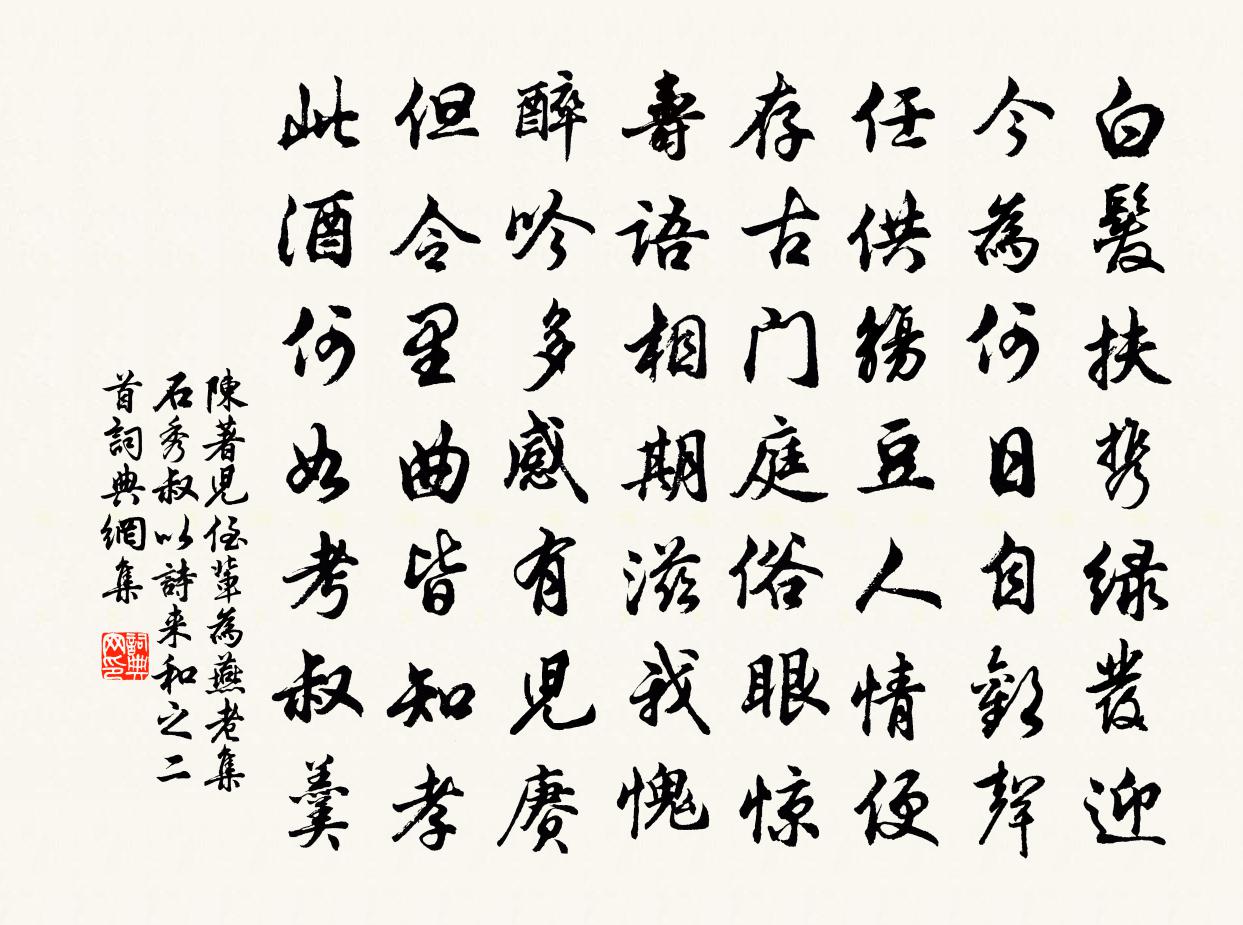 白髮扶携緑發迎
今為何日自歡聲
任供觴豆人情便
存古门庭俗眼惊
壽語相期滋我愧
醉吟多感有児赓
但令里曲皆知孝
此酒何如考叔羹
陳著児侄輩為燕老集
石秀叔以詩来和之二
首詞典網集
詞典网印